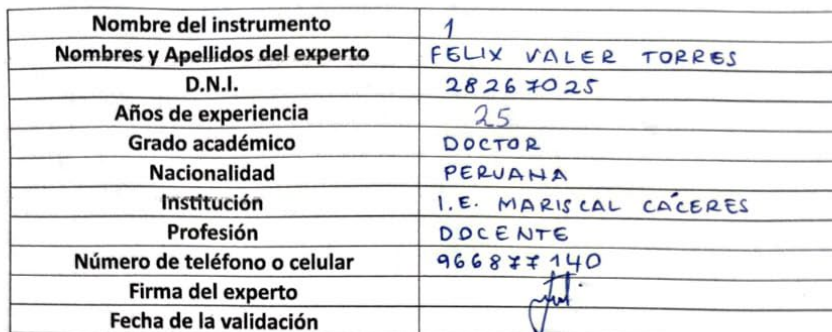 Nombre del instrumento 1
Nombres y Apellidos del experto FELIX VALER TORRES
D.N.I. 28267025
Años de experiencia 25
Grado académico DOCTOR
Nacionalidad PERUANA
Institución I.E. MARISCAL CÁCERES
Profesión DOCENTE
Número de teléfono o celular 966877140
Firma del experto
Fecha de la validación